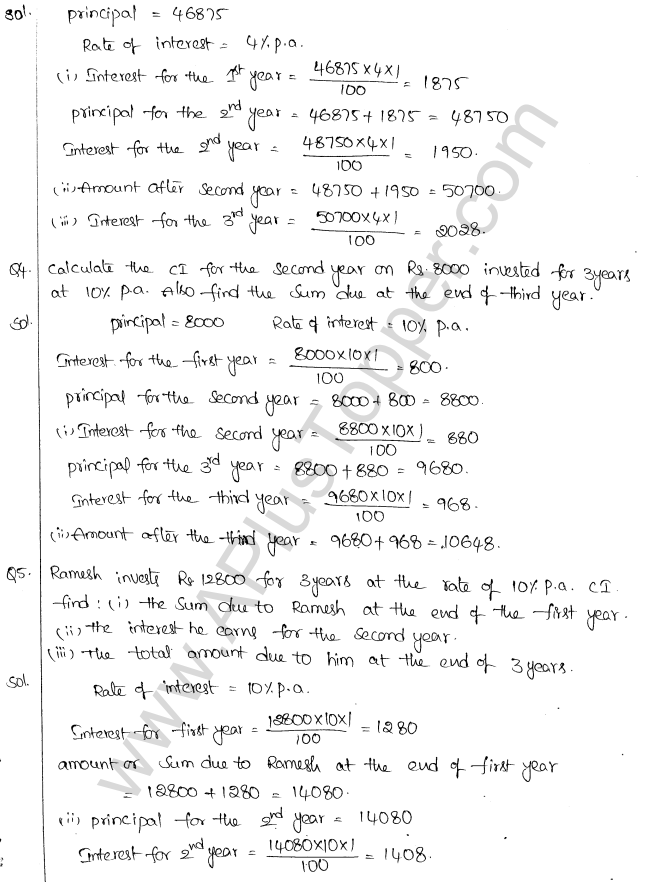 Sol. principal = 46875
Rate of interest = 4% p.a.
(i) Interest for the 1st year = 46875×4×1/100 = 1875
principal for the 2nd year = 46875 + 1875 = 48750
Interest for the 2nd year = 48750×4×1/100 = 1950.
(ii) Amount after second year = 48750 + 1950 = 50700.
(iii) Interest for the 3rd year = 50700×4×1/100 = 2028.
Q4. Calculate the CI for the second year on Rs. 8000 invested for 3years
at 10% p.a. Also find the Sum due at the end of third year.
Sol. principal = 8000 Rate of interest = 10% p.a.
Interest for the first year = 8000×10×1/100 = 800.
principal for the second year = 8000 + 800 = 8800.
(i) Interest for the second year = 8800×10×1/100 = 880
principal for the 3rd year = 8800 + 880 = 9680.
Interest for the third year = 9680×10×1/100 = 968.
(ii) Amount after the third year = 9680 + 968 = 10648.
Q5. Ramesh invests Rs 12800 for 3years at the rate of 10% p.a. CI.
find: (i) the Sum due to Ramesh at the end of the first year.
(ii) the interest he earns for the second year.
(iii) The total amount due to him at the end of 3 years.
Sol. Rate of interest = 10% p.a.
Interest for first year = 12800×10×1/100 = 1280
amount or Sum due to Ramesh at the end of first year
= 12800 + 1280 = 14080.
(ii) principal for the 2nd year = 14080
Interest for 2nd year = 14080×10×1/100 = 1408.
www.APlusTopper.com